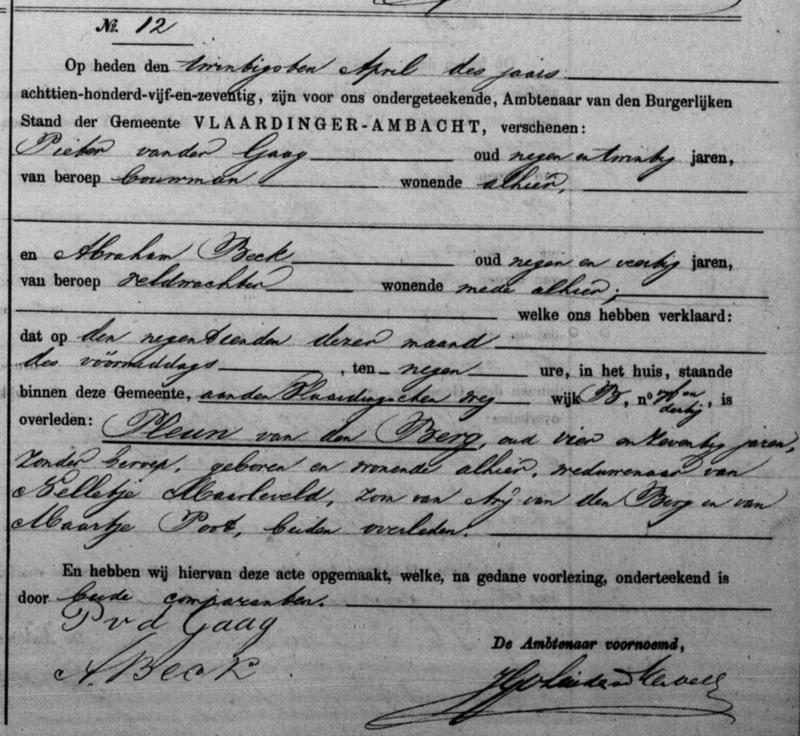 No. 12
Op heden den twintigsten April des jaars
achttien-honderd-vijf-en-zeventig, zijn voor ons ondergeteekende, Ambtenaar van den Burgerlijken
Stand der Gemeente VLAARDINGER-AMBACHT, verschenen:
Pieter van der Gaag oud negen en twintig jaren,
van beroep bouwman wonende alhier,
en Abraham Beck oud negen en veertig jaren,
van beroep veldwachter wonende mede alhier;
welke ons hebben verklaard:
dat op den negentienden dezer maand
des vóórmiddags, ten negen ure, in het huis, staande
binnen deze Gemeente, aan den Vlaardingschen weg wijk B, no. en dertig, is
overleden: Pleun van den Berg, oud vier en zeventig jaren,
zonder beroep, geboren en wonende alhier, weduwenaar van
Nelletje Maarleveld, zoon van Arij van den Berg en van
Maartje Poot, beiden overleden.
En hebben wij hiervan deze acte opgemaakt, welke, na gedane voorlezing, onderteekend is
door beide comparanten.
P v d Gaag
De Ambtenaar voornoemd,
A. Beck